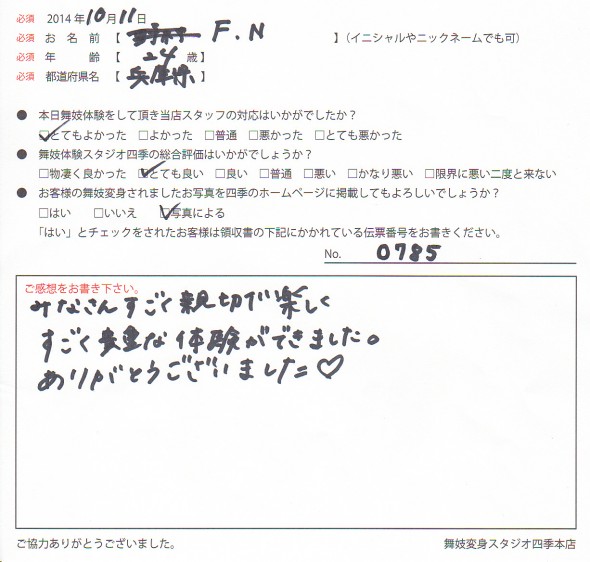 必須 2014年10月11日
必須 お名前【 F.N 】(イニシャルやニックネームでも可)
必須 年齢【 24 歳】
必須 都道府県名【 兵庫県 】
● 本日舞妓体験をして頂き当店スタッフの対応はいかがでしたか?
☑とてもよかった □よかった □普通 □悪かった □とても悪かった
● 舞妓体験スタジオ四季の総合評価はいかがでしょうか?
□物凄く良かった ☑とても良い □良い □普通 □悪い □かなり悪い □限界に悪い二度と来ない
● お客様の舞妓変身されましたお写真を四季のホームページに掲載してもよろしいでしょうか?
□はい □いいえ ☑写真による
「はい」とチェックをされたお客様は領収書の下記にかかれている伝票番号をお書きください。
No. 0785
ご感想をお書き下さい。
みなさんすごく親切で楽しく
すごく貴重な体験ができました。
ありがとうございました♡
ご協力ありがとうございました。 舞妓変身スタジオ四季本店